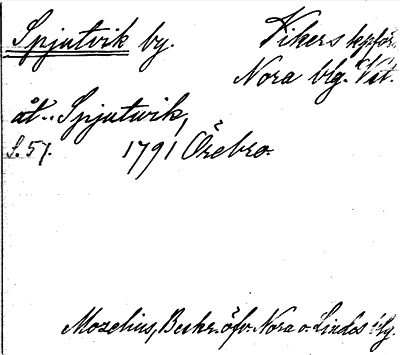 Spjutvik by. Vikers kpför.
Nora blg. Vstm.
åt.. Spjutwik,
S. 57. 1791 Örebro.
Mozelius, Beskr. öfv. Nora o. Lindes blg